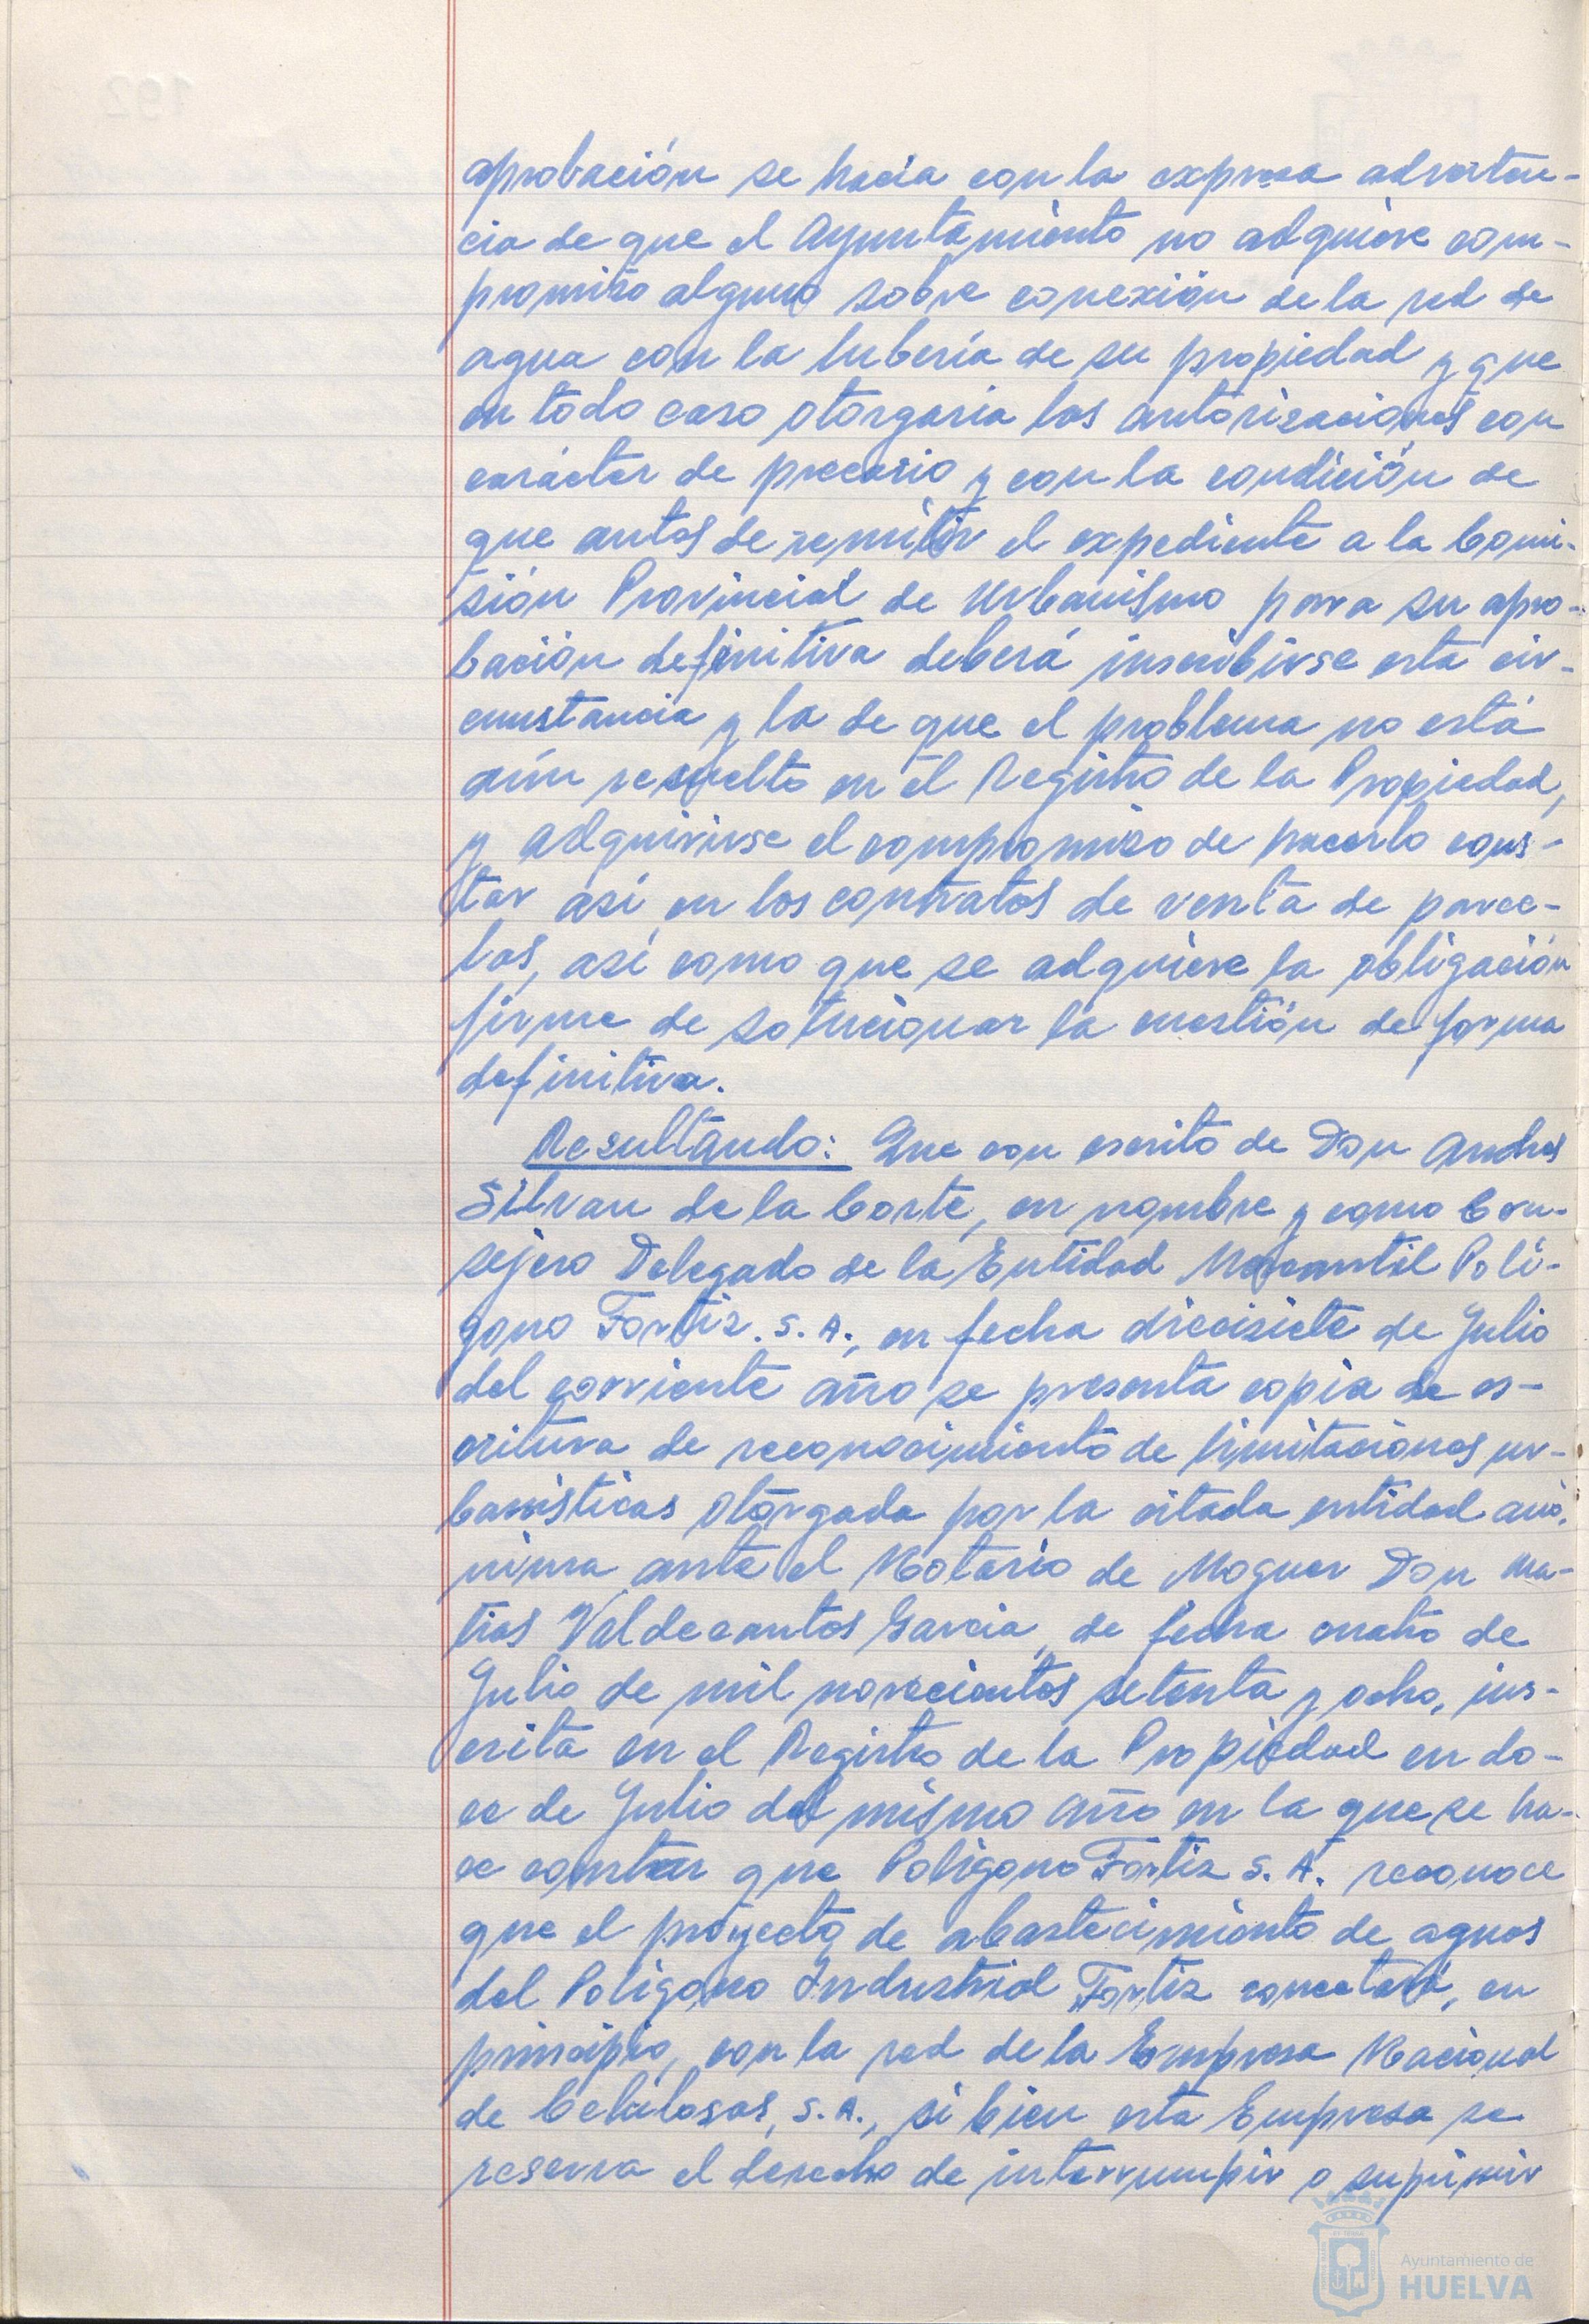 aprobación se hacía con la expresa adverten-
cia de que el Ayuntamiento no adquiere com-
promiso alguno sobre conexión de la red de
agua con la tubería de su propiedad y que
en todo caso otorgaría las autorizaciones con
carácter de precario y con la condición de
que antes de remitir el expediente a la Comi-
sión Provincial de Urbanismo para su apro-
bación definitiva deberá inscribirse esta cir-
cunstancia y la de que el problema no está
aún resuelto en el Registro de la Propiedad,
y adquirirse el compromiso de hacerlo cons-
tar así en los contratos de venta de parce-
las, así como que se adquiere la obligación
firme de solucionar la cuestión de forma
definitiva.
Resultando: Que con escrito de Don Andres
Silvan de la Corte, en nombre y como Con-
sejero Delegado de la Entidad Mercantil Polí-
gono Fortiz. S. A., en fecha diecisiete de Julio
del corriente año se presenta copia de es-
critura de reconocimiento de limitaciones ur-
banísticas otorgada por la citada entidad anó-
nima ante el Notario de Moguer Don Ma-
tias Valdecantos Garcia, de fecha cuatro de
Julio de mil novecientos setenta y ocho, ins-
crita en el Registro de la Propiedad en do-
ce de Julio del mismo año en la que se ha-
ce constar que Polígono Fortiz S. A. reconoce
que el proyecto de abastecimiento de aguas
del Polígono Industrial Fortiz conectará, en
principio, con la red de la Empresa Nacional
de Celulosas, S.A., si bien esta Empresa se
reserva el derecho de interrumpir o suprimir
Ayuntamiento de
HUELVA
192